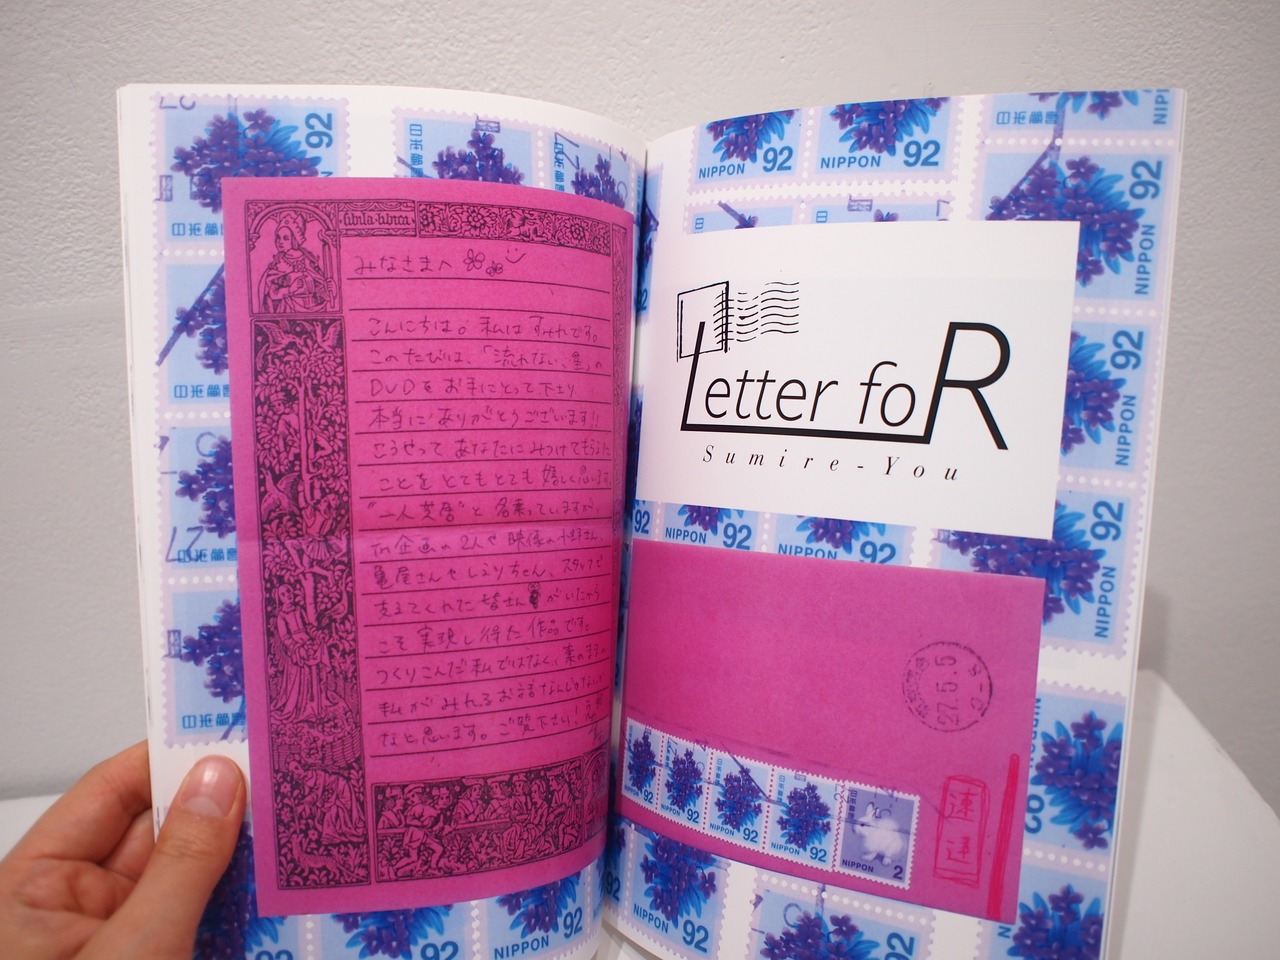 sibila·libica
みなさまへ
こんにちは。私は すみれです。
このたびは、「流れない、星」の
DVDを お手にとって 下さり
本当に ありがとうございます!!
こうやって あなたに みつけてもらえた
ことを とてもとても 嬉しく思います。
"一人芝居"と 名乗っていますが、
企画の 2人や 映像の 小野さん、
亀尾さんや しおりちゃん、スタッフで
支えてくれた 皆さん がいたから
こそ 実現し得た 作品です。
つくりこんだ 私ではなく、素のままの
私が みれる お話なんじゃないか
なと 思います。ご覧下さい!
Letter foR
Sumire-You
27.5.5
速達
日本郵便
NIPPON 92
NIPPON 92
NIPPON 92
NIPPON 92
NIPPON 2